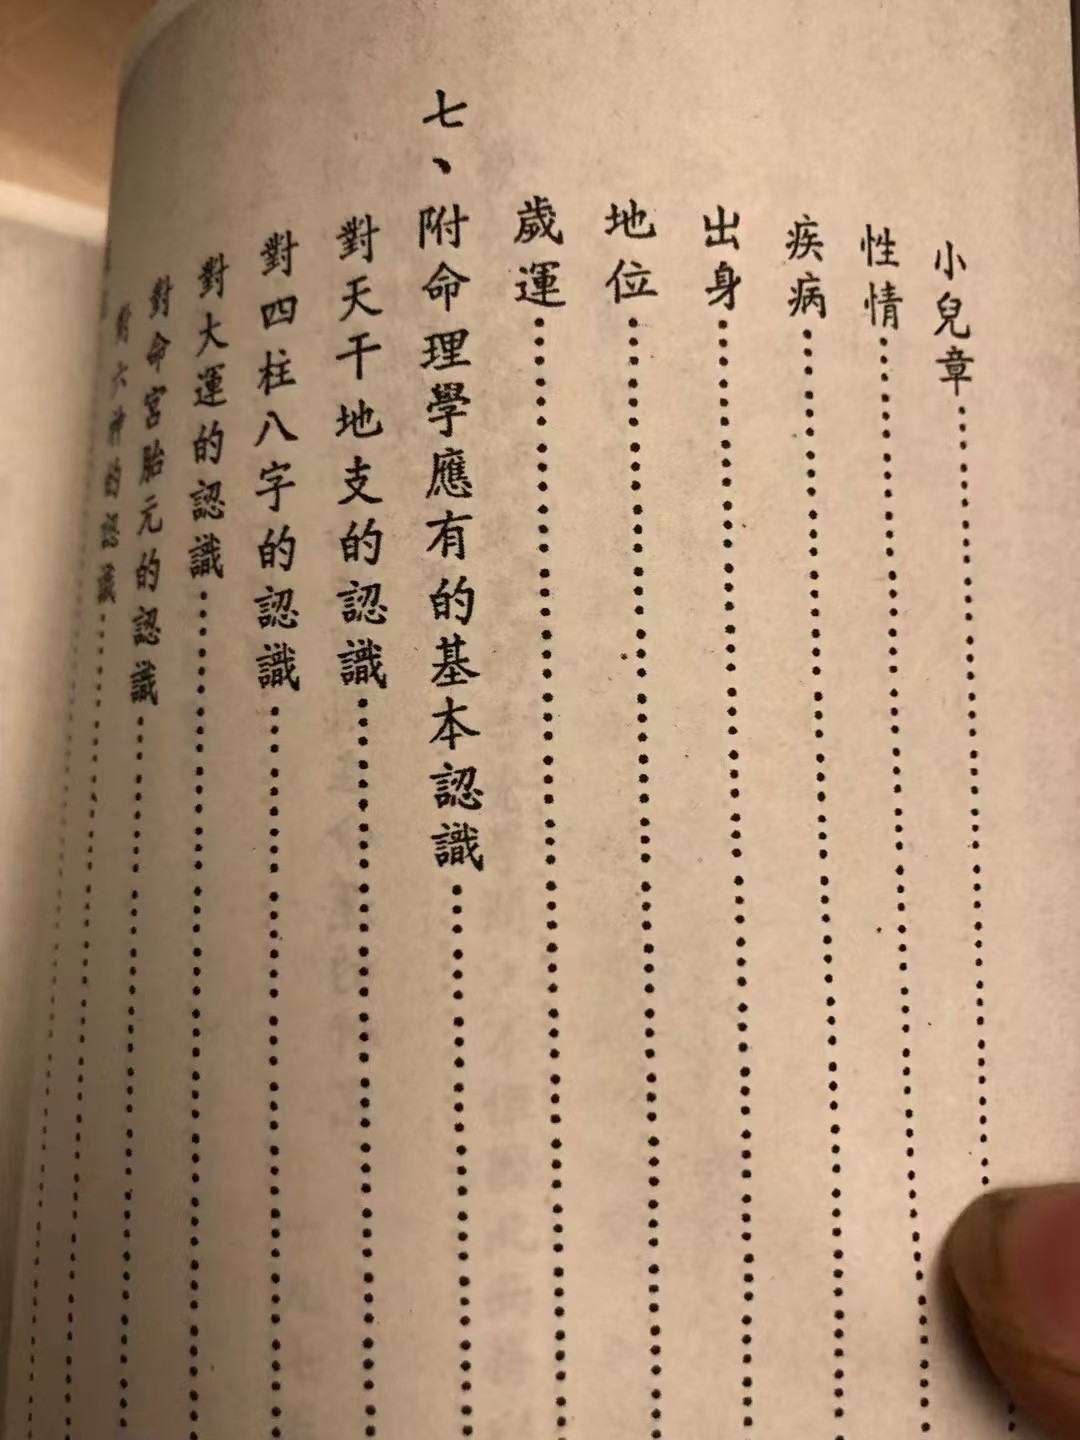 小兒章
性情
疾病
出身
地位
歲運
七、附命理學應有的基本認識
對天干地支的認識
對四柱八字的認識
對大運的認識
對命宮胎元的認識
對六神的認識